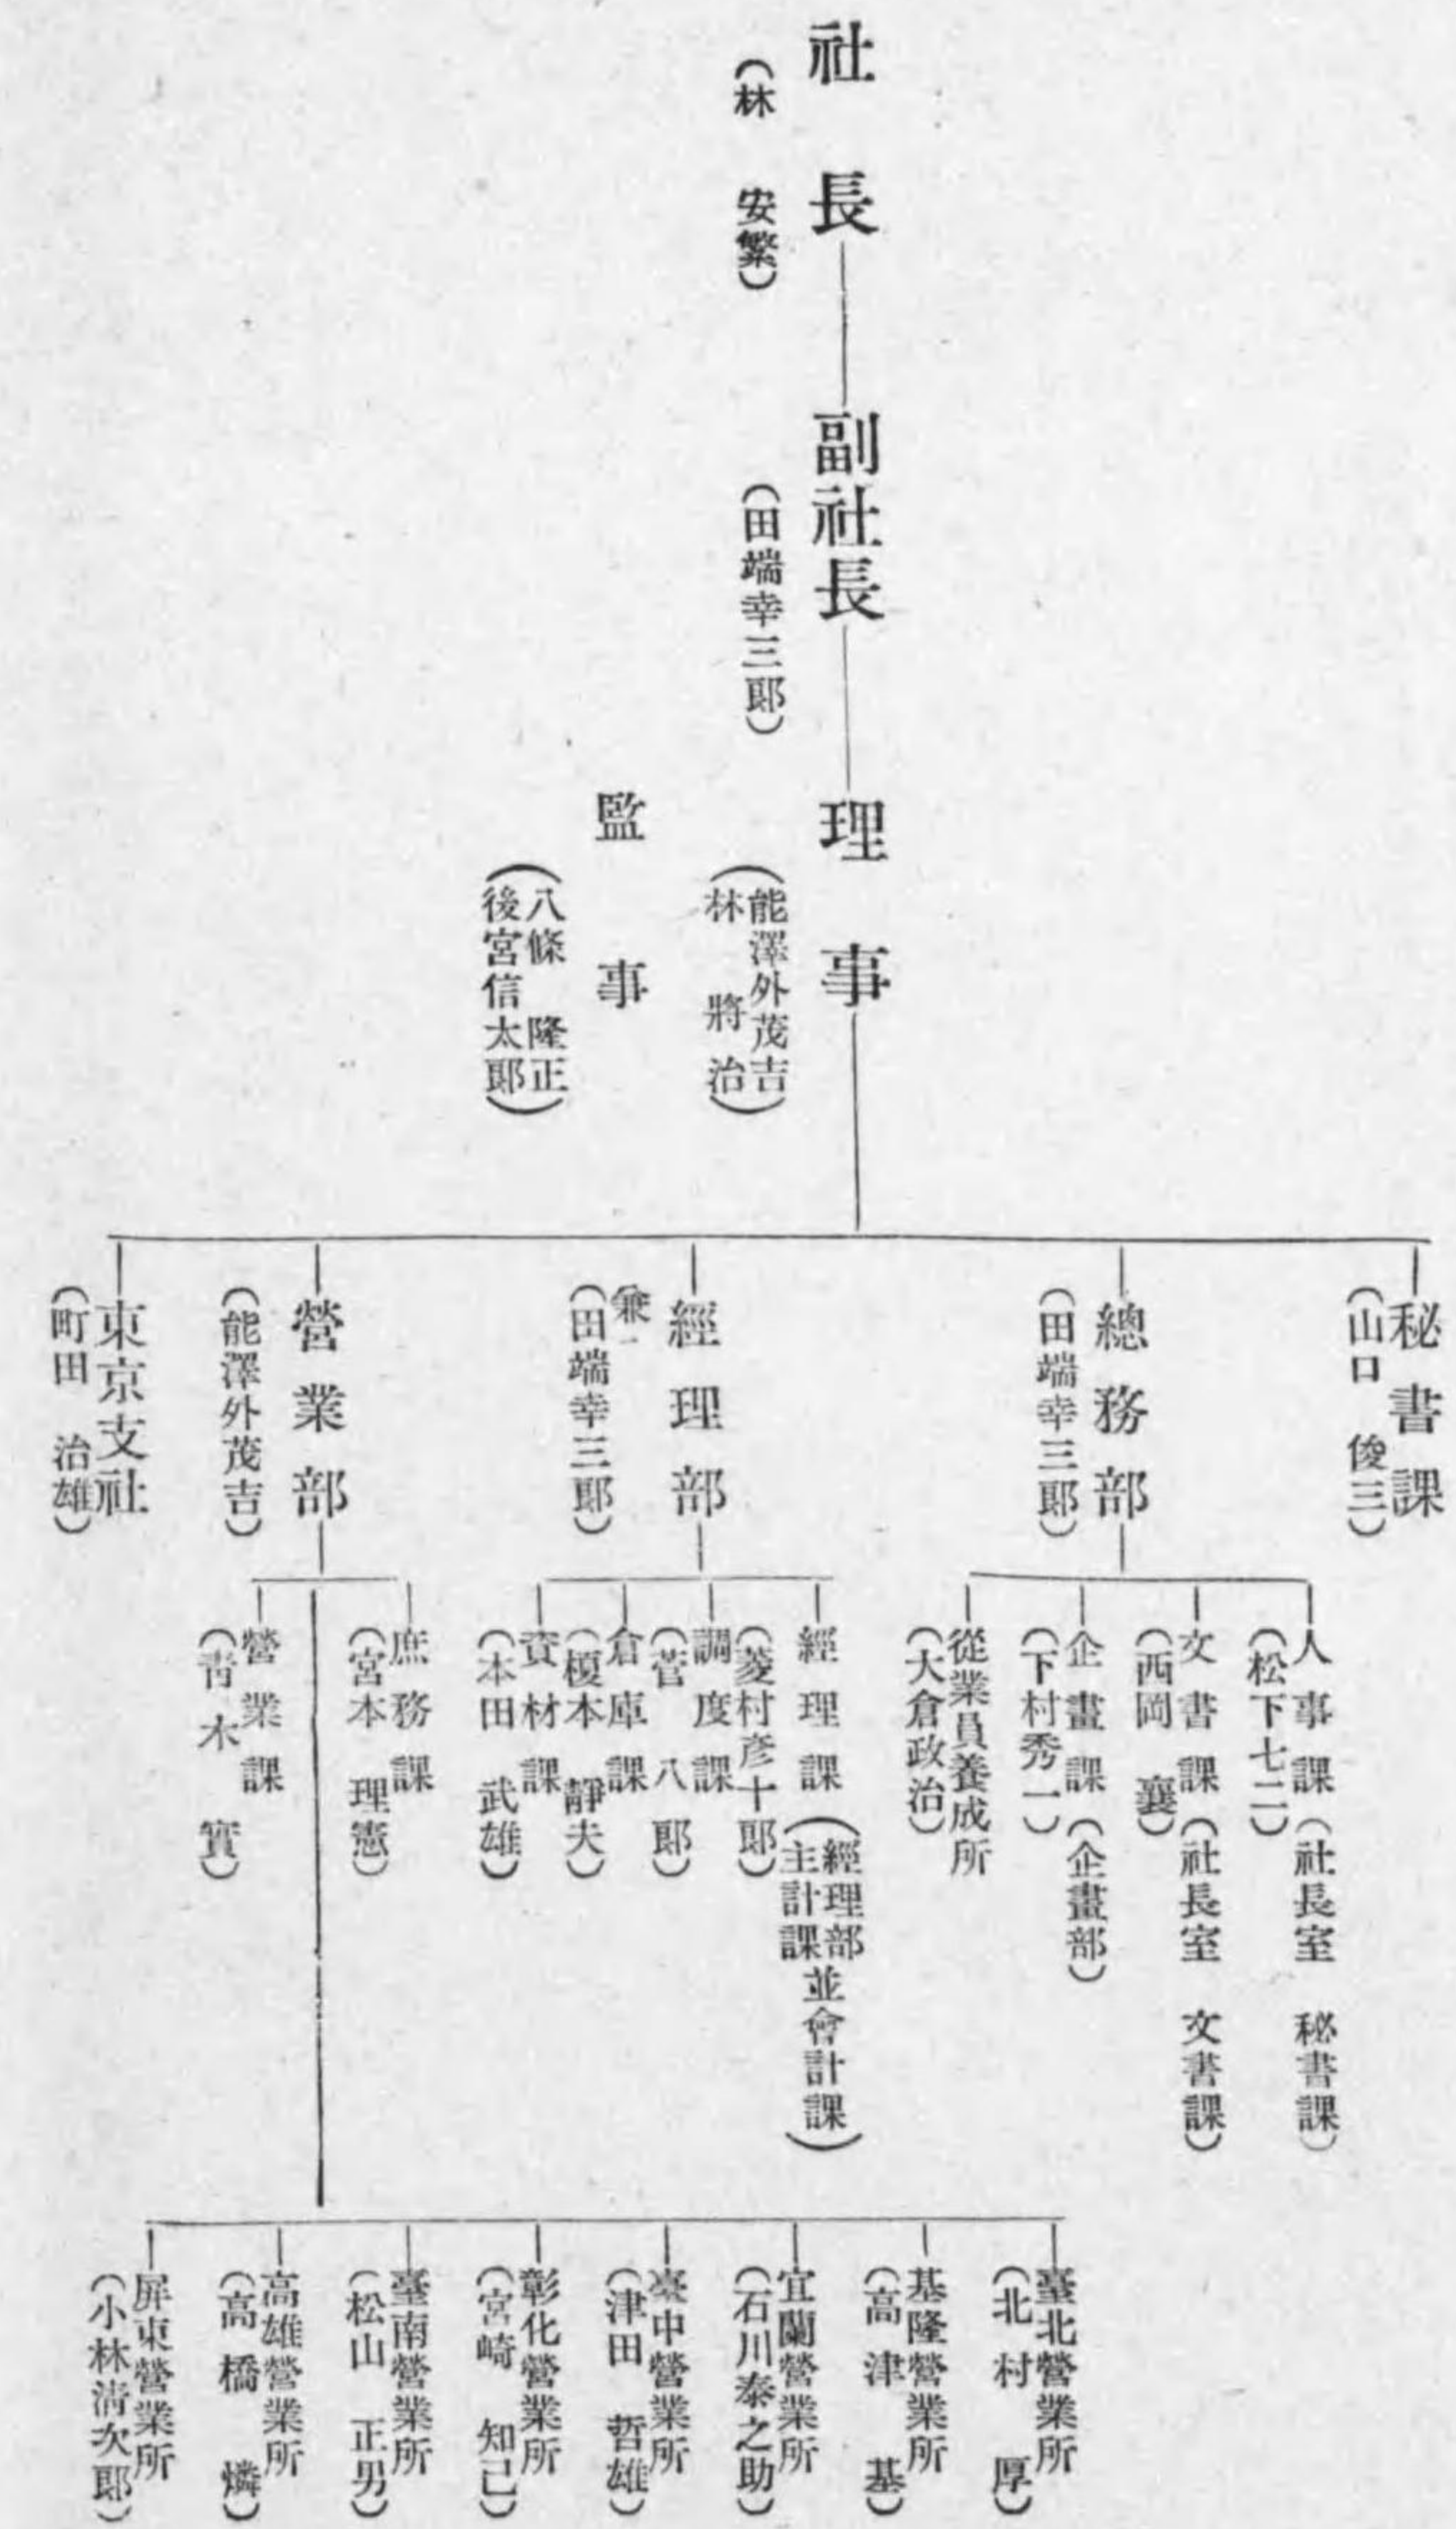 社長
(林 安繁)
副社長
(田端幸三郎)
理事
(能澤外茂吉
林 將治)
監事
(八條 隆正
後宮信太郎)
秘書課
(山口 俊三)
總務部
(田端幸三郎)
人事課(社長室 秘書課)
(松下七二)
文書課(社長室 文書課)
(西岡 襄)
企畫課(企畫部)
(下村秀一)
從業員養成所
(大倉政治)
經理部
(兼)
(田端幸三郎)
經理課(經理部
主計課並會計課)
(菱村彦十郎)
調度課
(菅 八郎)
倉庫課
(榎本 靜夫)
資材課
(本田 武雄)
營業部
(能澤外茂吉)
庶務課
(宮本 理憲)
營業課
(靑木 實)
臺北營業所
(北村 厚)
基隆營業所
(高津 基)
宜蘭營業所
(石川泰之助)
臺中營業所
(津田 哲雄)
彰化營業所
(宮崎 知己)
臺南營業所
(松山 正男)
高雄營業所
(高橋 燐)
屏東營業所
(小林淸次郎)
東京支社
(町田 治雄)